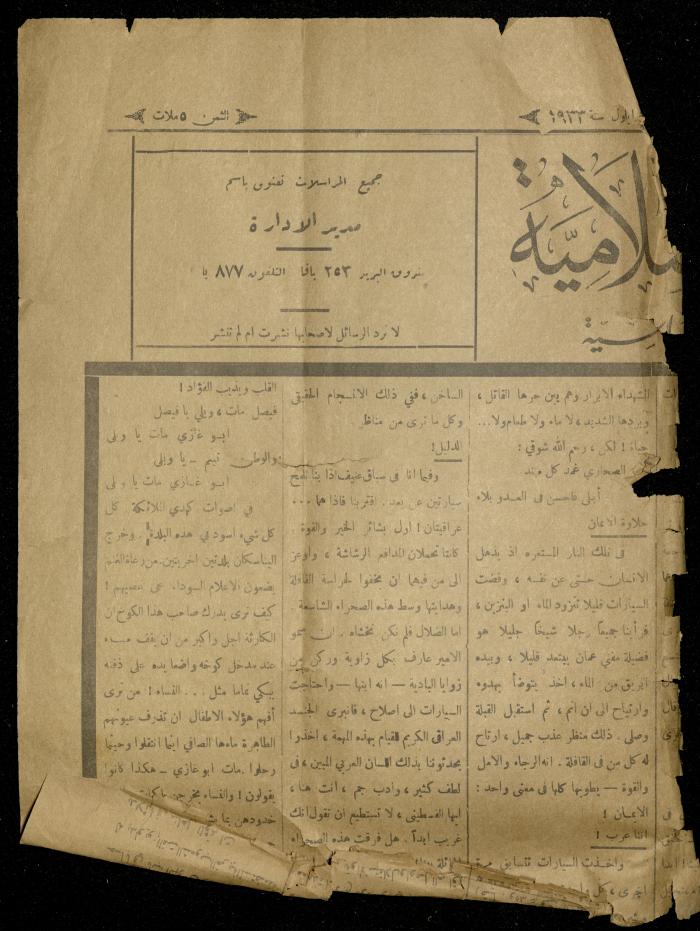 ايلول سنة ١٩٣٣
الثمن ٥ ملات
لامية
سية
جميع المراسلات تعنون باسم
مدير الادارة
صندوق البريد ٢٥٣ يافا التلفون ٨٧٧ يافا
لا ترد الرسائل لاصحابها نشرت ام لم تنشر
الشهداء الابرار وهم بين حرها القاتل ،
وبردها الشديد ، لا ماء ولا طعام ولا...
حياة ! لكن ، رحم الله شوقي :
الصحاري غمد كل مهند
أبلى فاحسن في العدو بلاء
حلاوة الايمان
في تلك النار المستعرة اذ يذهل
الانسان حتى عن نفسه ، وقفت
السيارات قليلا لتزود الماء او البنزين ،
فرأينا جميعا رجلا شيخا جليلا هو
فضيلة مفتي عمان يبتعد قليلا ، وبيده
ابريق من الماء ، اخذ يتوضأ بهدوء
وارتياح الى ان اتم ، ثم استقبل القبلة
وصلى . ذلك منظر عذب جميل ، ارتاح
له كل من في القافلة . انه الرجاء والامل
والقوة — يطويها كلها في معنى واحد :
الايمان !
اننا عرب !
واخذت السيارات تتسابق مرة
اخرى ، كل
الساخن ، ففي ذلك الانسجام الحقيقي
وكل ما نرى من مناظر
الدليل!
وفيما انا في سباق عنيف اذا بنا نلمح
سيارتين عن بعد . اقتربنا فاذا هما ...
عراقيتان ! اول بشائر الخير والقوة .
كانتا تحملان المدافع الرشاشة ، واوعز
الى من فيهما ان يخفوا لحراسة القافلة
وهدايتها وسط هذه الصحراء الشاسعة .
اما الضلال فلم نكن نخشاه . ان سمو
الامير عارف بكل زاوية وركن من
زوايا البادية — انه ابنها — واحتاجت
السيارات الى اصلاح ، فانبرى الجند
العراقي الكريم للقيام بهذه المهمة ، اخذوا
يحدثوننا بذلك اللسان العربي المبين ، في
لطف كثير ، وادب جم ، أنت هنا ،
ايها الفلسطيني ، لا تستطيع ان تقول انك
غريب ابداً . هل فرقت هذه الصحراء
القلب ويذيب الفؤاد !
فيصل مات ، ويلي يا فيصل
ابو غازي مات يا ويلي
والوطن تيتم — يا ويلي
ابو غازي مات يا ويلي
في اصوات كهدي الملائكة . كل
كل شيء اسود في هذه البلدة . وخرج
الينا سكان بلدتين اخريتين من رعاة الغنم
يضعون الاعلام السوداء على عصيهم !
كيف ترى يدرك صاحب هذا الكوخ ان
الكارثة اجل واكبر من ان يقف مبهـ
عند مدخل كوخه واضعا يده على ذقنه
يبكي تماما مثل . . . النساء ! من ترى
أفهم هؤلاء الاطفال ان تذرف عيونهم
الطاهرة ماءها الصافي اينما انتقلوا وحيثما
رحلوا . مات ابو غازي — هكذا كانوا
يقولون ! والنساء مخرجن باكيات
خدودهن بما